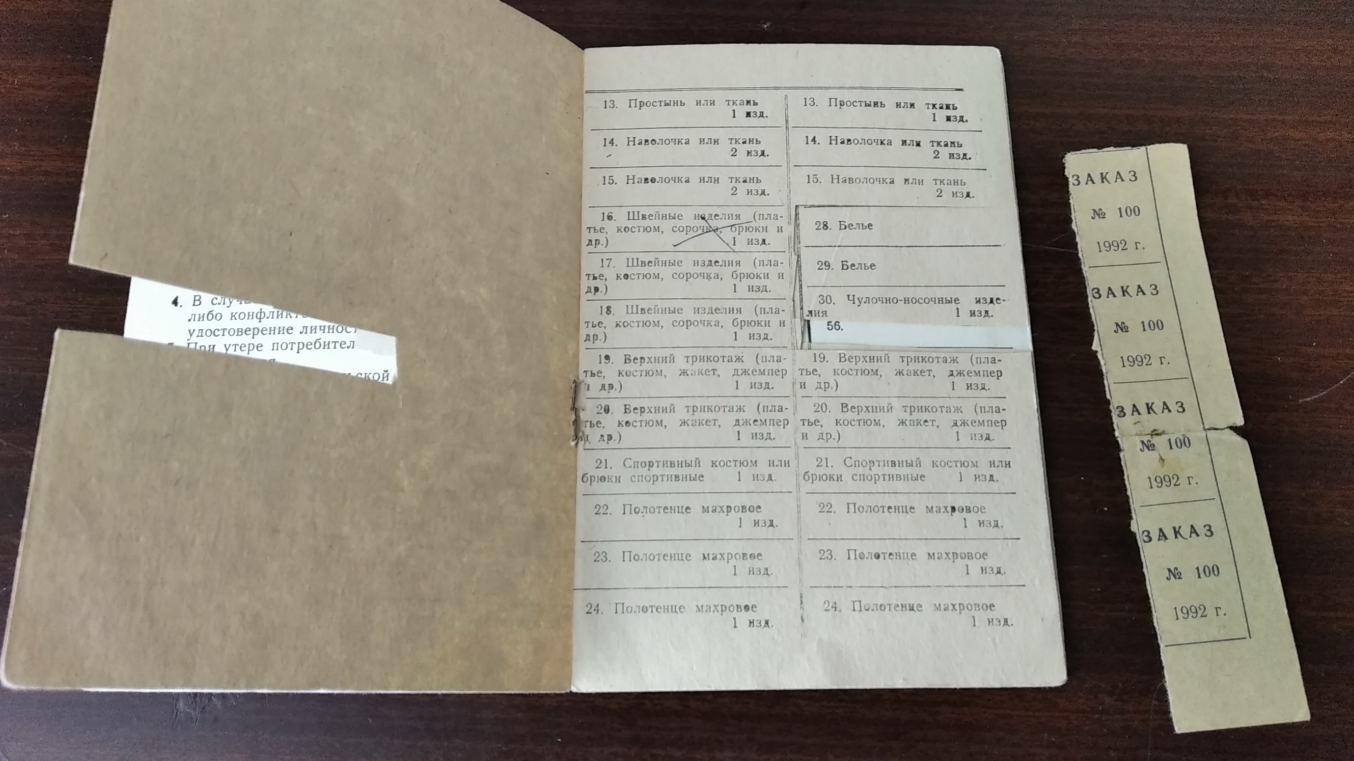 4. В случ
либо конфликт
удостоверение личност
При утере потребител
ской
13. Простынь или ткань
1 изд.
14. Наволочка или ткань
2 изд.
15. Наволочка или ткань
2 изд.
16. Швейные изделия (пла-
тье, костюм, сорочка, брюки и
др.) 1 изд.
17. Швейные изделия (пла-
тье, костюм, сорочка, брюки и
др.) 1 изд.
18. Швейные изделия (пла-
тье, костюм, сорочка, брюки и
др.) 1 изд.
19. Верхний трикотаж (пла-
тье, костюм, жакет, джемпер
и др.) 1 изд.
20. Верхний трикотаж (пла-
тье, костюм, жакет, джемпер
и др.) 1 изд.
21. Спортивный костюм или
брюки спортивные 1 изд.
22. Полотенце махровое
1 изд.
23. Полотенце махровое
1 изд.
24. Полотенце махровое
1 изд.
13. Простынь или ткань
1 изд.
14. Наволочка или ткань
2 изд.
15. Наволочка или ткань
2 изд.
28. Белье
29. Белье
30. Чулочно-носочные изде-
лия 1 изд.
56.
19. Верхний трикотаж (пла-
тье, костюм, жакет, джемпер
и др.) 1 изд.
20. Верхний трикотаж (пла-
тье, костюм, жакет, джемпер
и др.) 1 изд.
21. Спортивный костюм или
брюки спортивные 1 изд.
22. Полотенце махровое
1 изд.
23. Полотенце махровое
1 изд.
24. Полотенце махровое
1 изд.
ЗАКАЗ
№ 100
1992 г.
ЗАКАЗ
№ 100
1992 г.
ЗАКАЗ
№ 100
1992 г.
ЗАКАЗ
№ 100
1992 г.